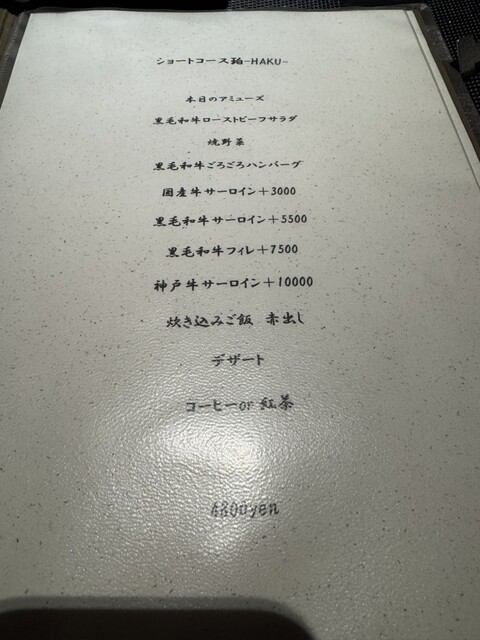 ショートコース珀-HAKU-
本日のアミューズ
黒毛和牛ローストビーフサラダ
焼野菜
黒毛和牛ごろごろハンバーグ
国産牛サーロイン+3000
黒毛和牛サーロイン+5500
黒毛和牛フィレ+7500
神戸牛サーロイン+10000
炊き込みご飯 赤出し
デザート
コーヒーor 紅茶
4800yen